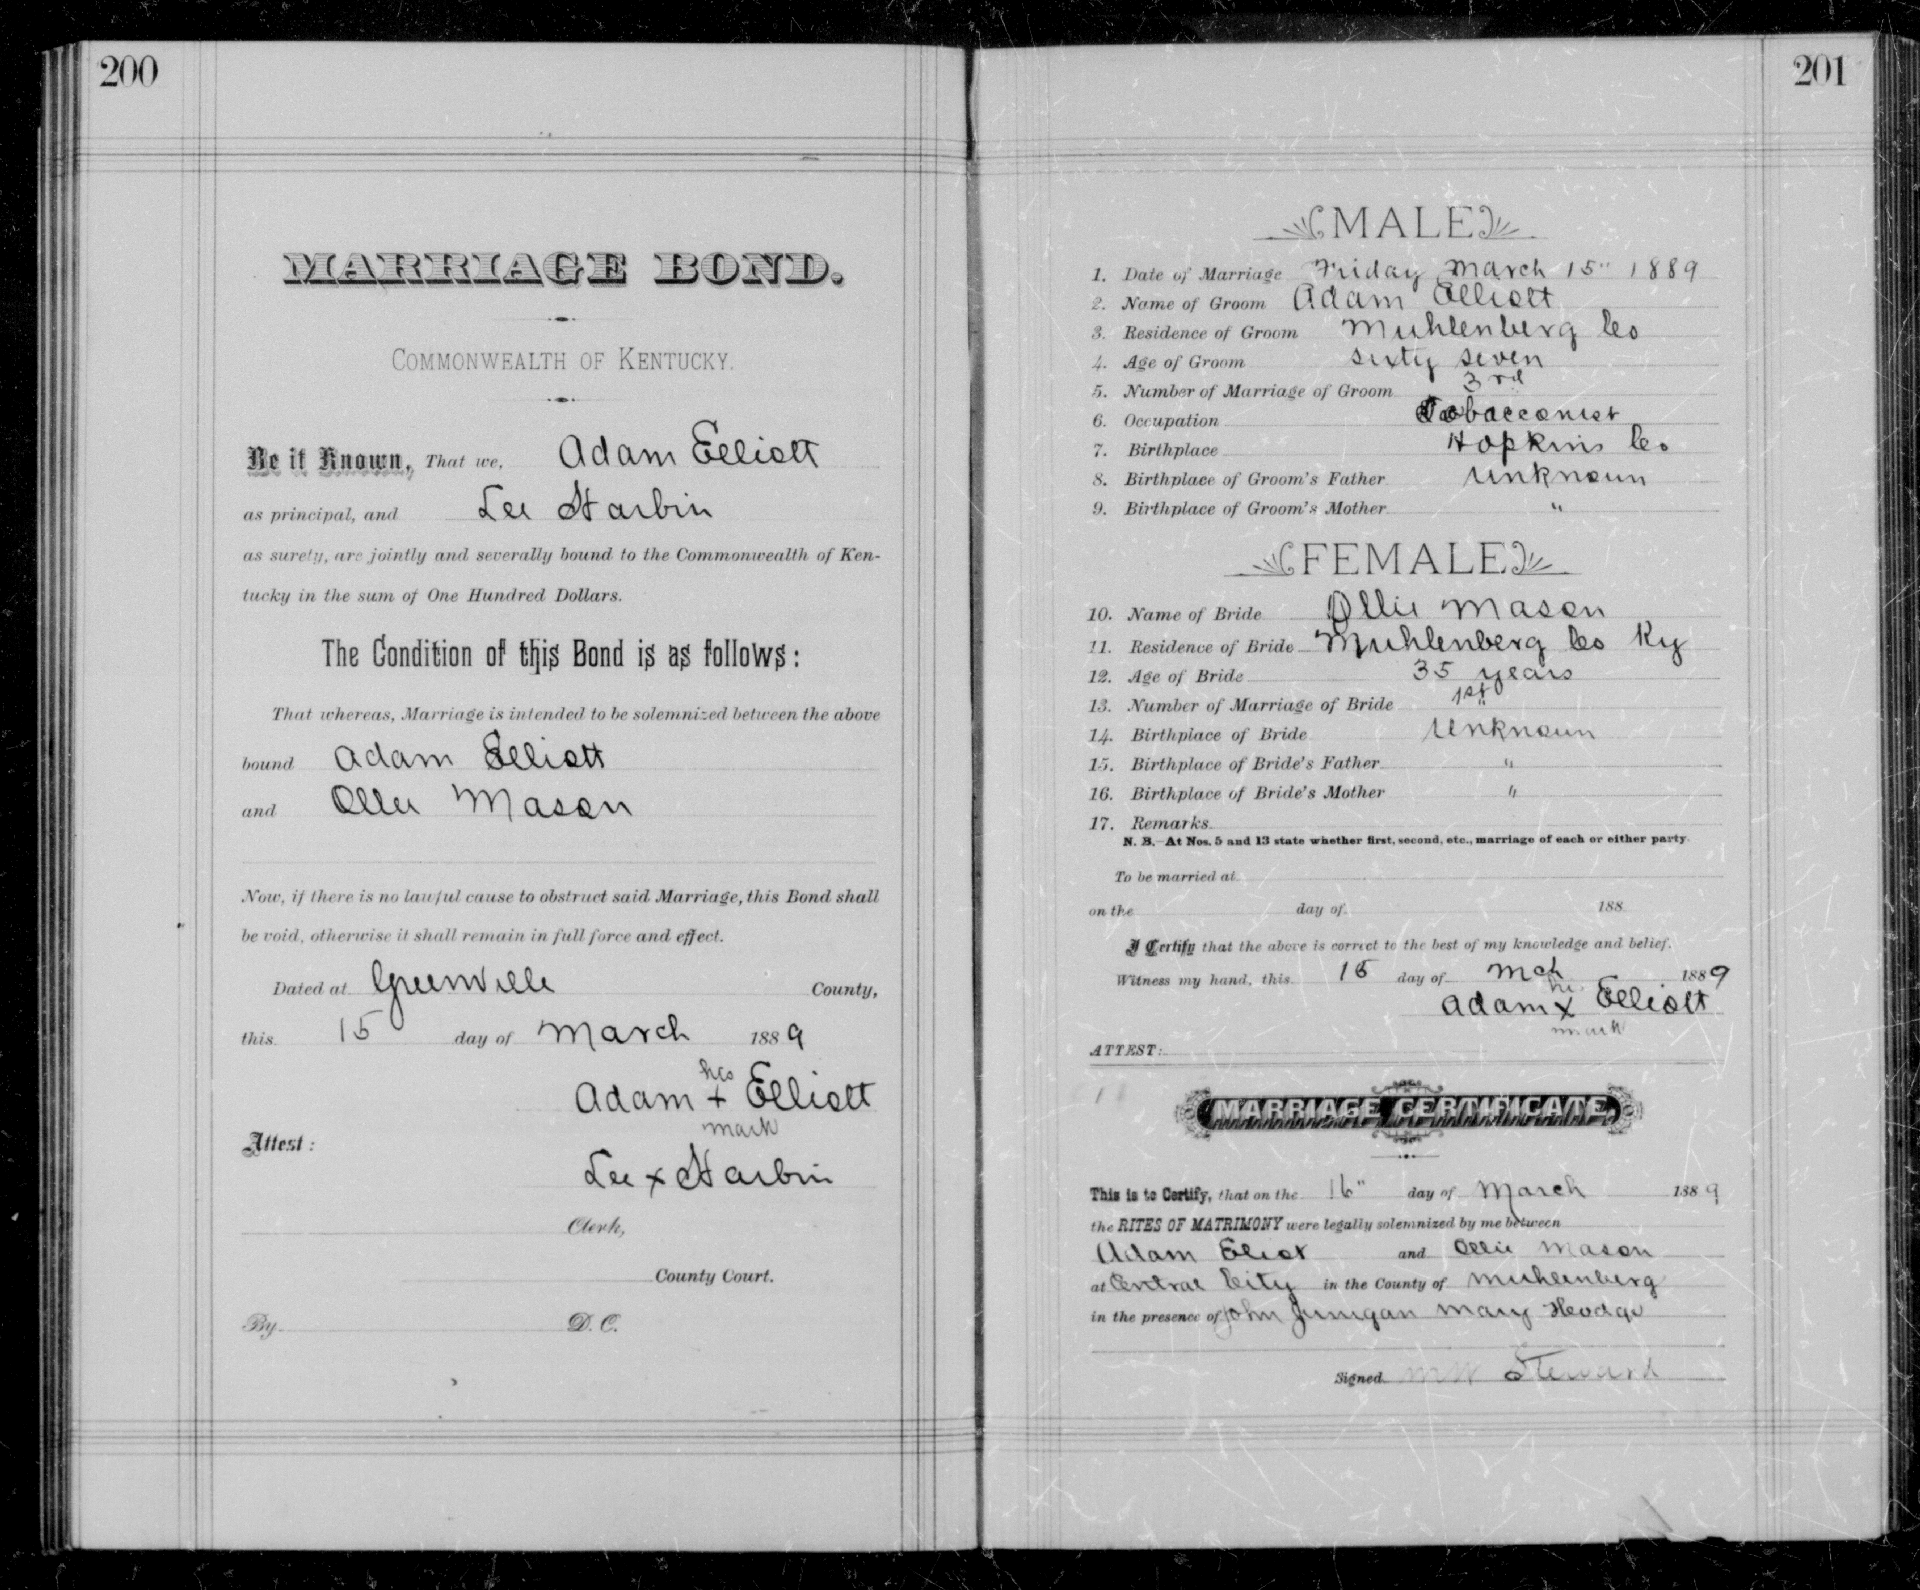 200
MARRIAGE BOND.
COMMONWEALTH OF KENTUCKY.
Be it Known, That we, Adam Elliott
as principal, and Lee Harbin
as surety, are jointly and severally bound to the Commonwealth of Ken-
tucky in the sum of One Hundred Dollars.
The Condition of this Bond is as follows:
That whereas, Marriage is intended to be solemnized between the above
bound Adam Elliott
and Ollie Mason
Now, if there is no lawful cause to obstruct said Marriage, this Bond shall
be void, otherwise it shall remain in full force and effect.
Dated at Greenville County,
this 15 day of March 1889
his
Adam + Elliott
mark
Attest:
Lee x Harbin
Clerk,
County Court.
By D. C.
201
MALE
1. Date of Marriage Friday March 15" 1889
2. Name of Groom Adam Elliott
3. Residence of Groom Muhlenberg Co
4. Age of Groom sixty seven
5. Number of Marriage of Groom 3rd
6. Occupation Tobacconist
7. Birthplace Hopkins Co
8. Birthplace of Groom's Father Unknown
9. Birthplace of Groom's Mother "
FEMALE
10. Name of Bride Ollie Mason
11. Residence of Bride Muhlenberg Co Ky
12. Age of Bride 35 years
13. Number of Marriage of Bride 1st
14. Birthplace of Bride Unknown
15. Birthplace of Bride's Father "
16. Birthplace of Bride's Mother "
17. Remarks
N. B.—At Nos. 5 and 13 state whether first, second, etc., marriage of each or either party.
To be married at
on the day of 188
I Certify that the above is correct to the best of my knowledge and belief.
Witness my hand, this 15 day of Mch 1889
his
Adam x Elliott
mark
ATTEST:
MARRIAGE CERTIFICATE.
This is to Certify, that on the 16" day of March 1889
the RITES OF MATRIMONY were legally solemnized by me between
Adam Eliot and Ollie Mason
at Central City in the County of Muhlenberg
in the presence of John Mary
Signed M W Steward